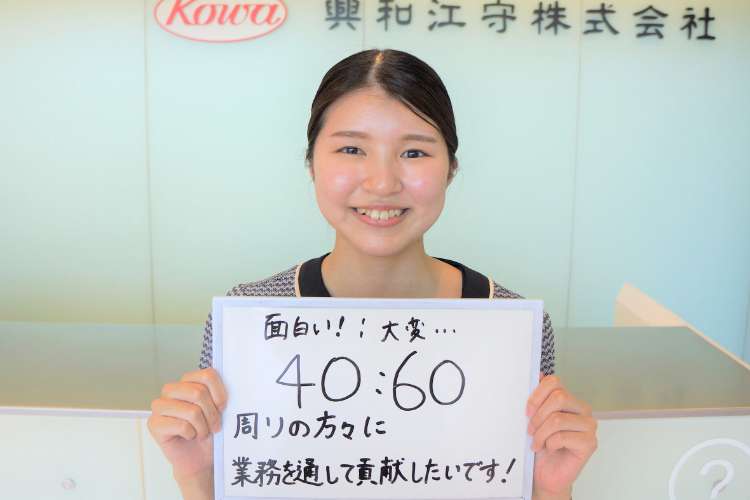 Kowa 興和江守株式会社
面白い!:大変…
40:60
周りの方々に
業務を通して貢献したいです!
?